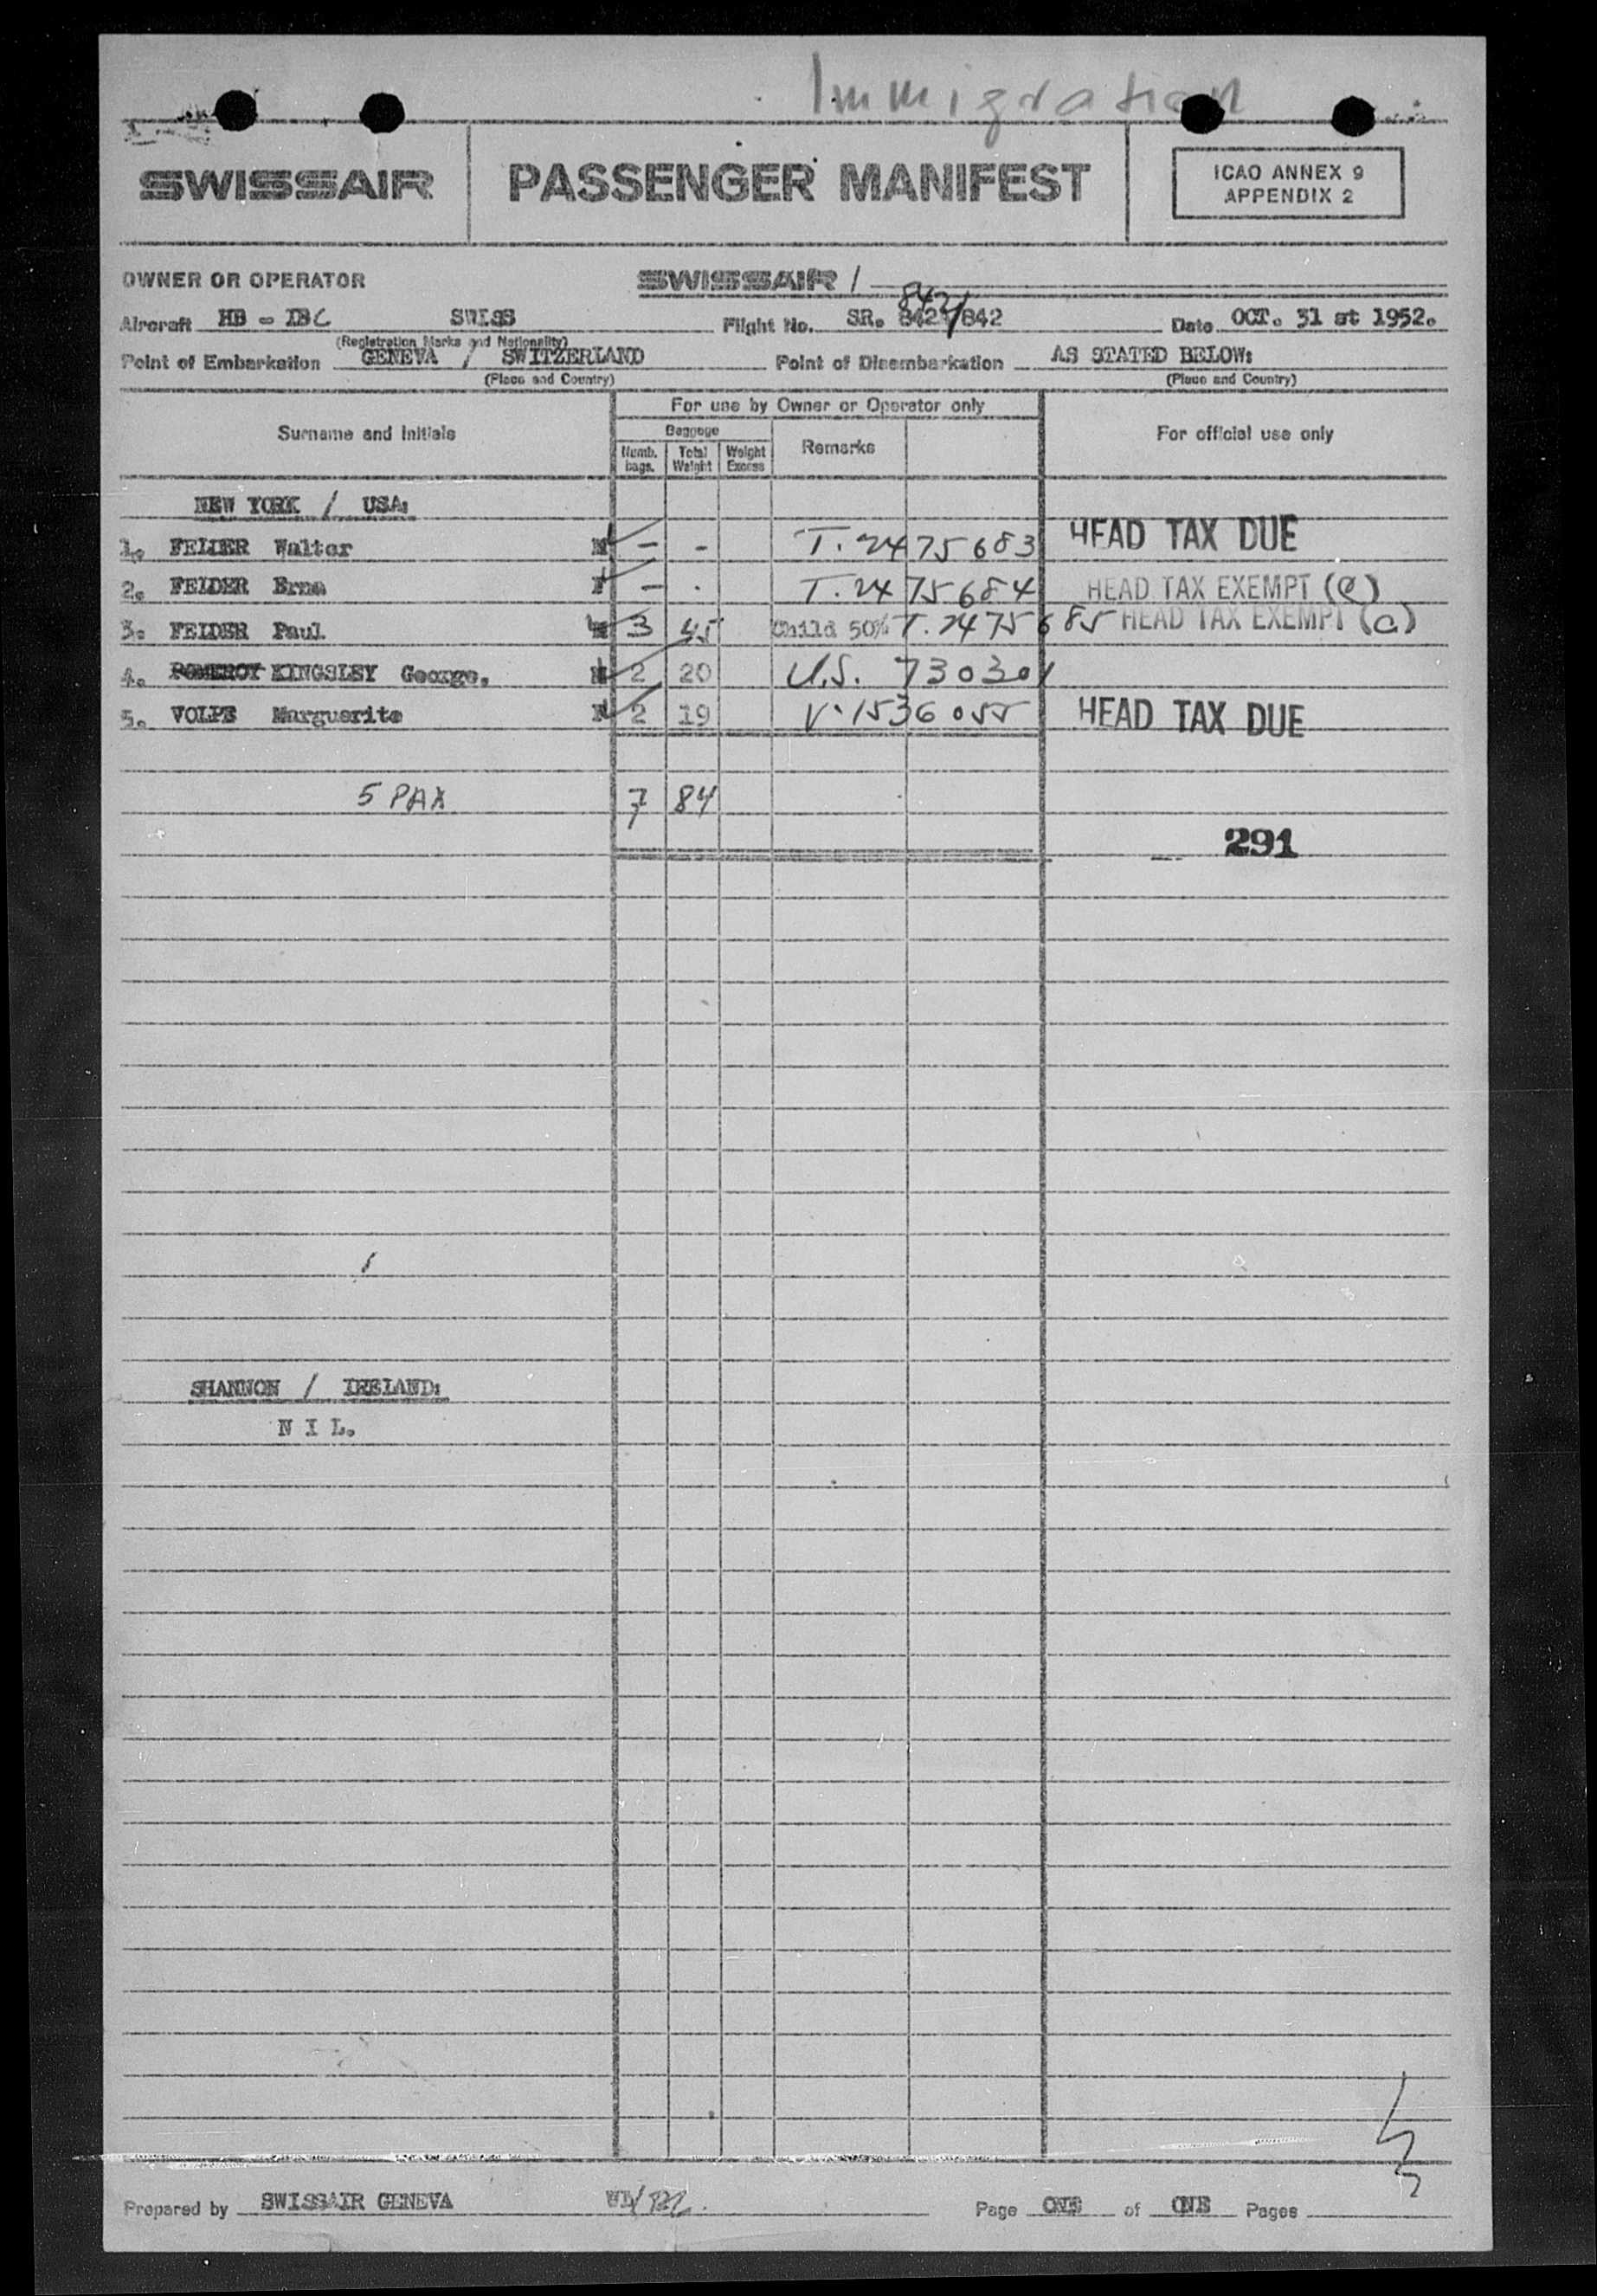 Immigration
SWISSAIR PASSENGER MANIFEST ICAO ANNEX 9
APPENDIX 2
OWNER OR OPERATOR SWISSAIR /
842/
Aircraft HB - IBC SWISS Flight No. SR. 842/842 Date OCT. 31 st 1952.
(Registration Marks and Nationality)
Point of Embarkation GENEVA / SWITZERLAND Point of Disembarkation AS STATED BELOW:
(Place and Country) (Place and Country)
For use by Owner or Operator only
Surname and Initials Baggage Remarks For official use only
Numb. bags. Total Weight Weight Excess
NEW YORK / USA:
1. FELDER Walter M - - T. 2475683 HEAD TAX DUE
2. FELDER Erna F - - T. 2475684 HEAD TAX EXEMPT (a)
3. FELDER Paul M 3 45 Child 50% T. 2475685 HEAD TAX EXEMPT (a)
4. POMEROY KINGSLEY George. M 2 20 U.S. 730301
5. VOLPE Marguerite F 2 19 V. 1536055 HEAD TAX DUE
5 PAX 7 84
291
SHANNON / IRELAND:
N I L.
Prepared by SWISSAIR GENEVA Page ONE of ONE Pages